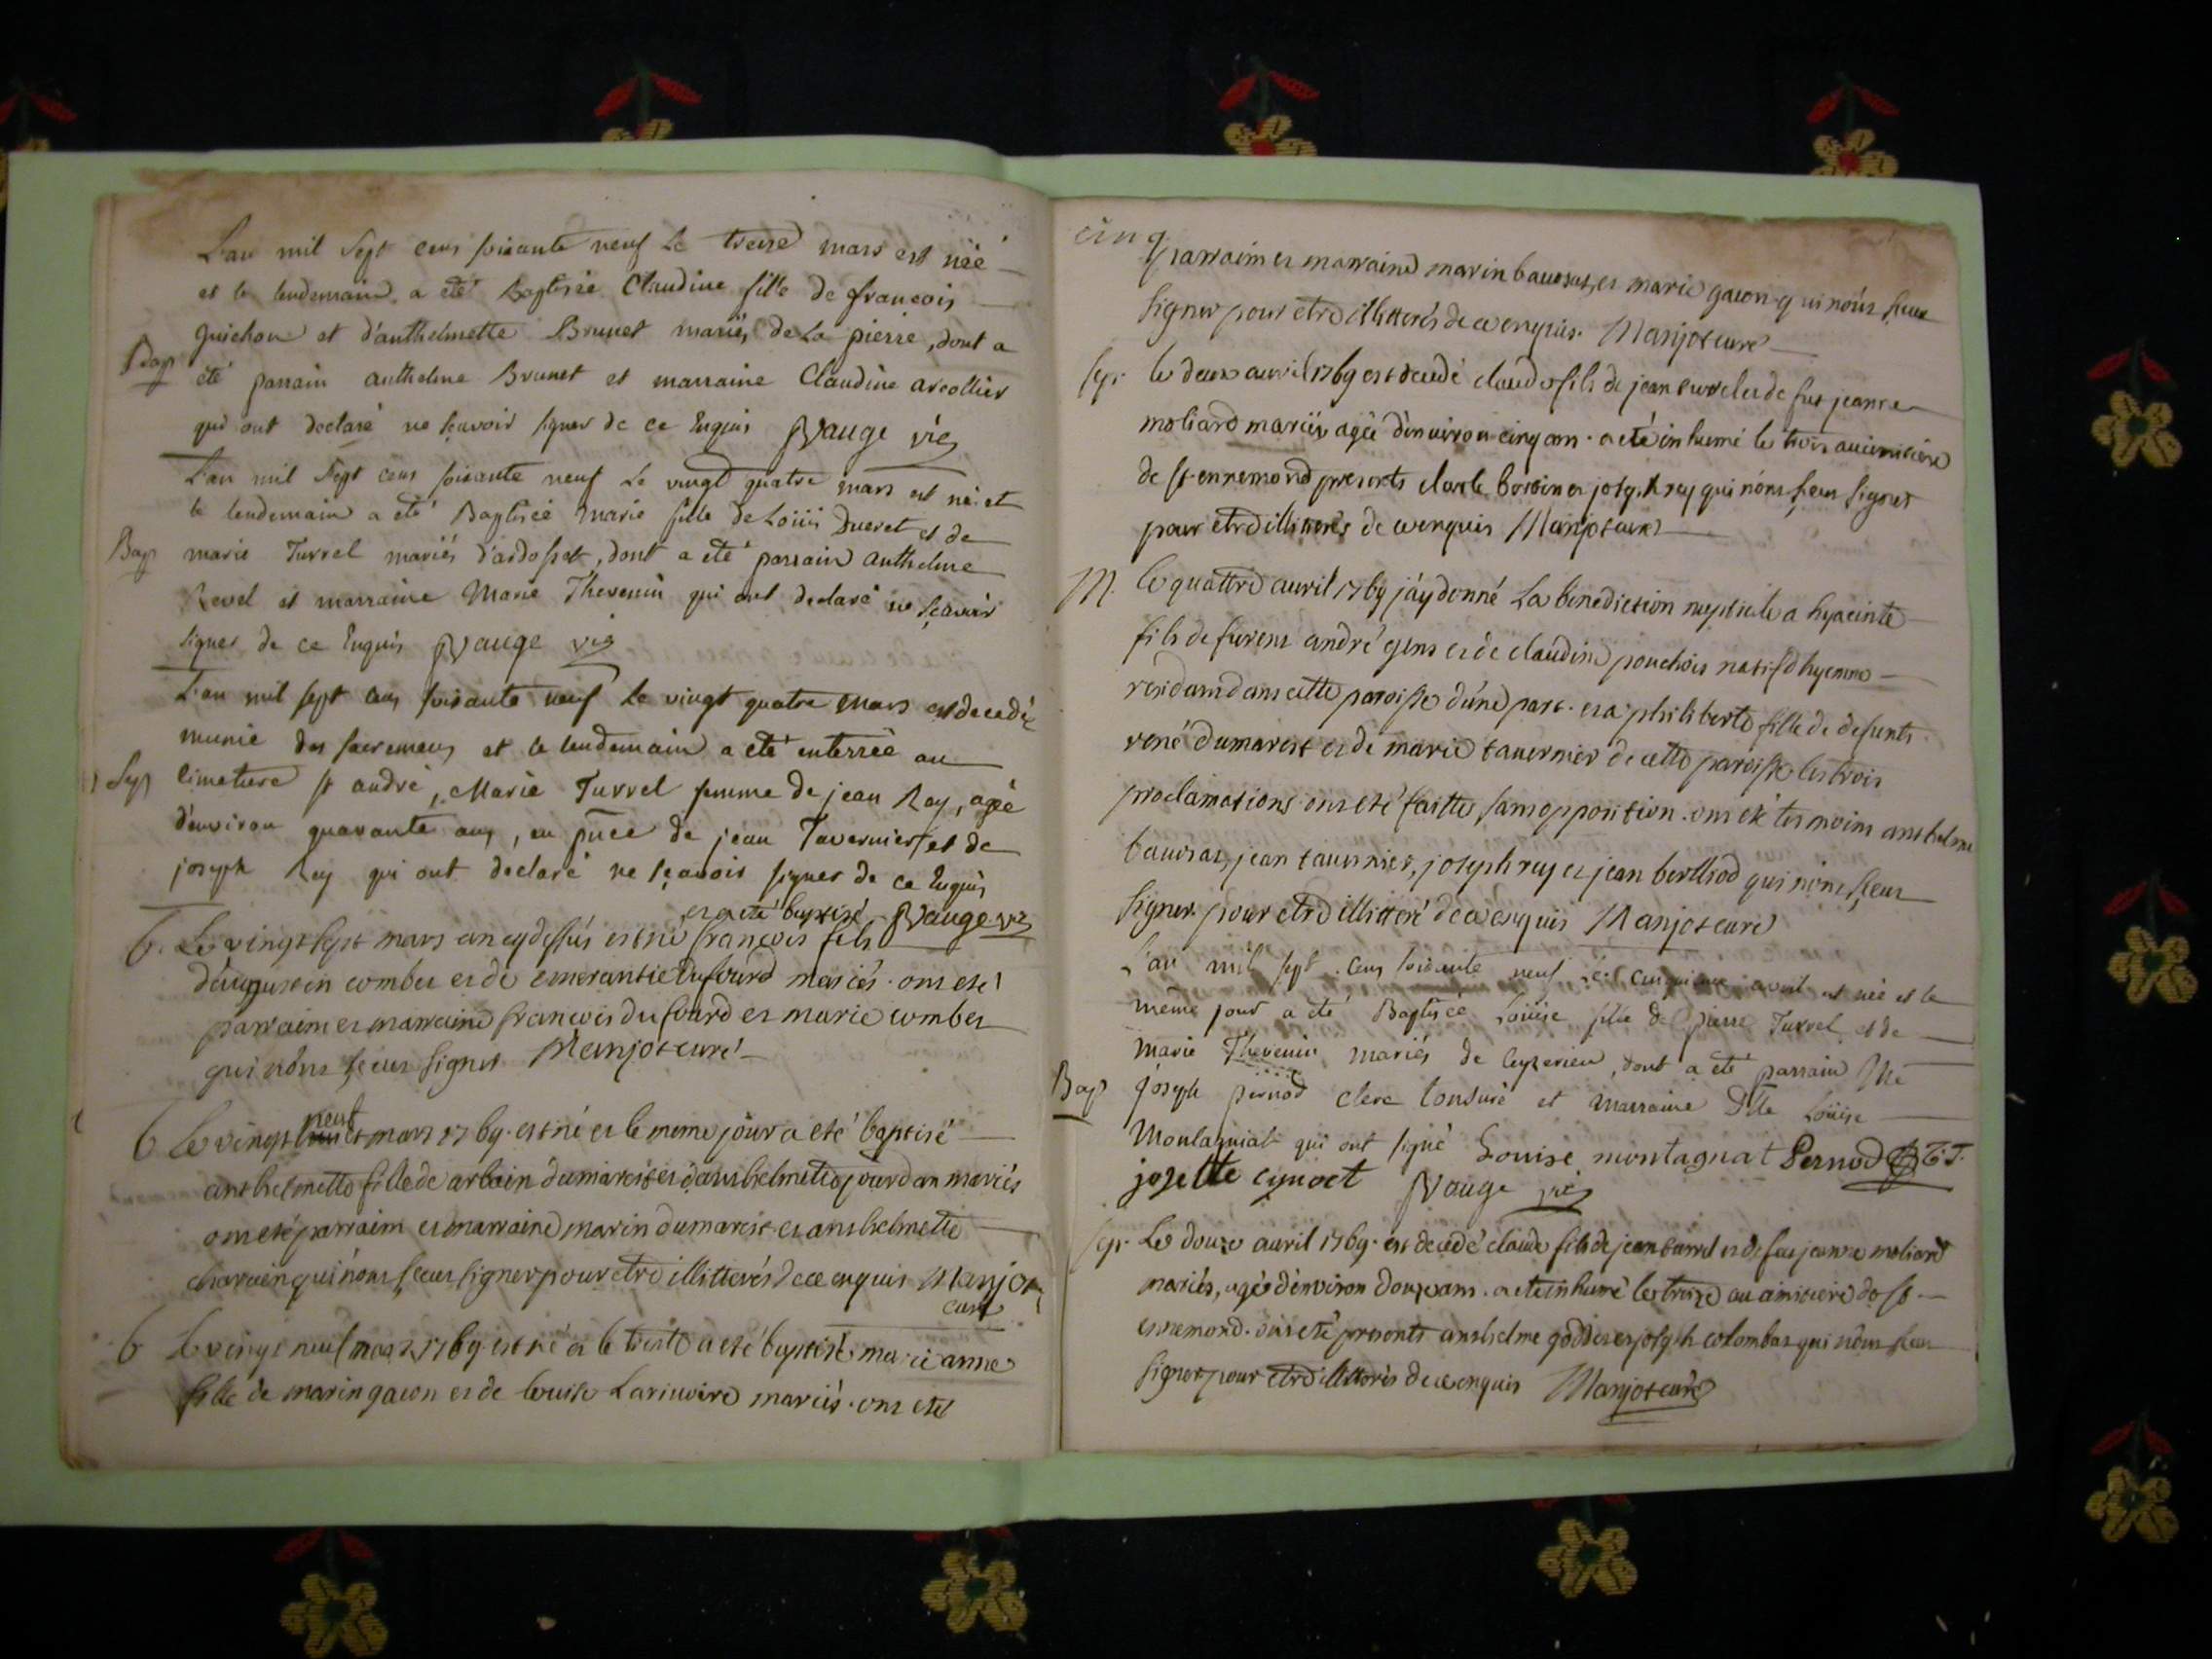 L'an mil Sept cens soixante neuf Le treize mars est née
et le lendemain a eté Baptisée Claudine fille de francois
guichon et d'anthelmette Brunet mariés de La pierre, dont a
Bap
été parrain anthelme Brunet et marraine Claudine arcollier
qui ont declaré ne sçavoir signer de ce Enquis Vauge vic
L'an mil Sept cens soixante neuf Le vingt quatre mars est né et
le lendemain a eté Baptisée marie fille de Loüis Ducret et de
Bap marie Turrel mariés d'ardosset, dont a eté parrain anthelme
Revel et marraine Marie Thevenin qui ont declaré ne sçavoir
signer de ce Enquis Vauge vic
L'an mil sept cens soixante neuf Le vingt quatre Mars est decedée
munie des sacremens et le lendemain a eté enterrée au
Sep cimetiere st andré, Marie Turrel femme de jean Rey, agée
d'environ quarante ans, en pñce de jean Tavernier et de
joseph Rey qui ont declaré ne sçavoir signer de ce Enquis
et a eté baptisé Vauge vic
b. Le vingt sept mars an cy dessus est né françois fils
d'augustin combet et de emerantie Dufourd mariés. ont eté
parrain et marraine françois du fourd et marie combet
qui nont sceu signer Manjot curé
neuf
b Le vingt mars 1769 est né et le meme jour a eté baptisé
anthelmette fille de arbain dumarest et danthelmette jourdan mariés
ont eté parrain et marraine marin dumarest et anthelmette
qui nont sceu signer pour etre illitterés de ce enquis Manjot
curé
b Le vingt neuf mars 1769 est né et le trente a eté baptisé marie anne
fille de marin gacon et de louise Lariviere mariés. ont eté
cinq
parrain et marraine marin et marie gacon qui nont sceu
signer pour etre illitterés de ce enquis. Manjot curé
Sep. le deux avril 1769 est decedé claude fils de jean et de fut jeanne
moliard mariés agée denviron cinq ans. a eté inhumé le trois au cimitiere
de st ennemond presents et joseph rey qui nont sceu signer
pour etre illitterés de ce enquis Manjot curé
M. Le quattre avril 1769 jáy donné La benediction nuptiale a hyacinte
fils de furent andré gens et de claudine pouchois natif d hyenne
residant dans cette paroisse d'une part. et a philiberte fille de defunts
rené Dumarest et de marie tavernier de cette paroisse les trois
proclamations ont eté faitte sans opposition. ont eté temoins anthelme
jean tavernier, joseph rey et jean berthod qui nont sceu
signer pour etre illitteré de ce enquis Manjot curé
L'an mil sept cens soixante neuf le cinquieme avril est née et le
même jour a eté Baptisée Loüise fille de pierre Turrel et de
marie Thevenin mariés de leyzerieu, dont a eté parrain Mre
Bap joseph pernod clerc tonsuré et marraine Dlle Loüise
Montagniat qui ont signé Louise montagnat Pernod C.T.
josette cynoet Vauge vic
Sep. Le douze avril 1769. est decedé claude fils de jean turrel et de fut jeanne moliard
mariés, agé d'environ douze ans. a eté inhumé le treize au cimitiere de st
ennemond. ont eté presents anthelme et joseph colombet qui nont sceu
signer pour etre illitterés de ce enquis Manjot curé